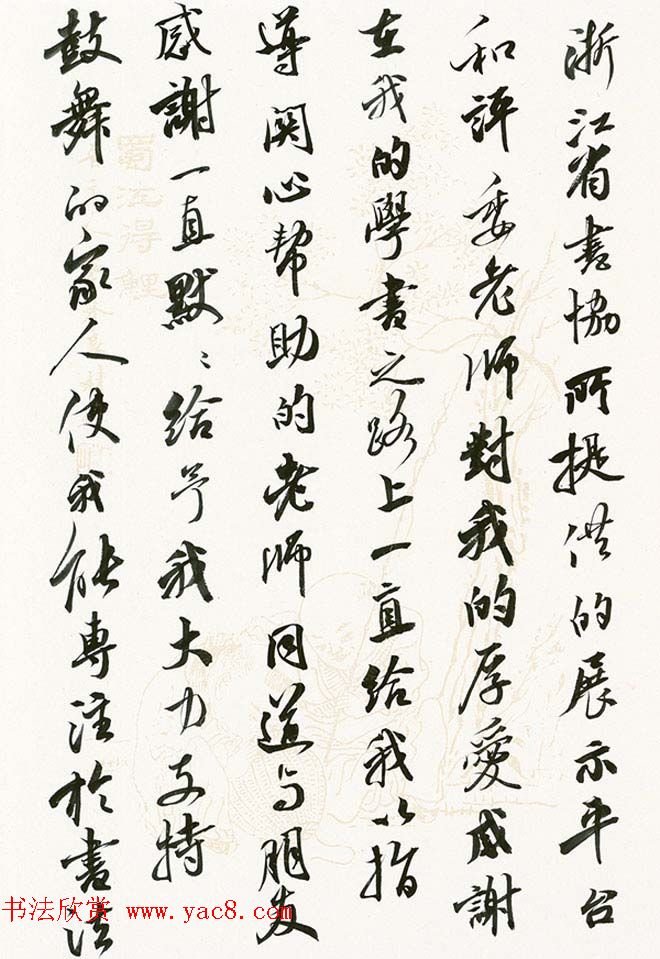 浙江省書協所提供的展示平台
和評委老师對我的厚愛感謝
在我的學書之路上一直給我以指
導関心帮助的老师同道与朋友
感謝一直默〻给予我大力支持
鼓舞的家人使我能專注於書法
蜀江得鯉
书法欣赏 www.yac8.com